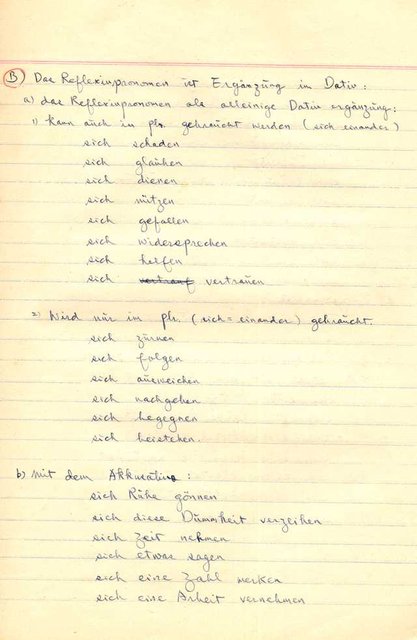 B) Das Reflexivpronomen ist Ergänzung im Dativ:
a) das Reflexivpronomen als alleinige Dativ ergänzung:
1) Kann auch im plr. gebraucht werden (sich einander)
sich schaden
sich glauben
sich dienen
sich nützen
sich gefallen
sich widersprechen
sich helfen
sich vertrauen
2) Wird nur im plr. (sich = einander) gebraucht.
sich zürnen
sich folgen
sich ausweichen
sich nachgehen
sich begegnen
sich beistehen.
b) mit dem Akkusativ:
sich Ruhe gönnen
sich diese Dummheit verzeihen
sich Zeit nehmen
sich etwas sagen
sich eine Zahl merken
sich eine Arbeit vernehmen